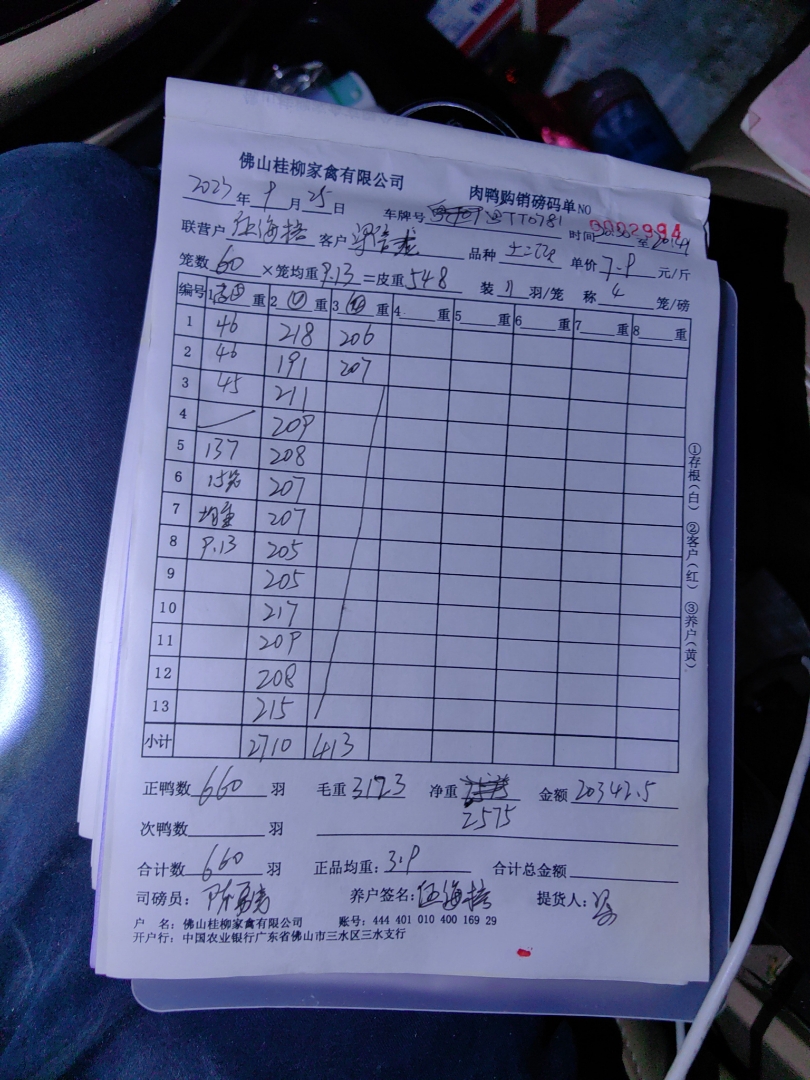 佛山桂柳家禽有限公司 肉鸭购销磅码单 NO 0002994
2023年9月25日 车牌号 TT0781 时间 至 20:49
联营户 伍海搭 客户 品种 单价 7.9 元/斤
笼数 60 ×笼均重 9.13 =皮重 548 装 11 羽/笼 称 4 笼/磅
编号 1 重 2 重 3 重 4 重 5 重 6 重 7 重 8 重
1 46 218 206
2 46 191 207
3 45 211
4 209
5 137 208
6 15笼 207
7 均重 207
8 9.13 205
9 205
10 217
11 209
12 208
13 215
小计 2710 413
正鸭数 660 羽 毛重 3123 净重 2575 金额 20342.5
次鸭数 羽
合计数 660 羽 正品均重: 3.9 合计总金额
司磅员: 养户签名: 提货人:
户 名: 佛山桂柳家禽有限公司 账号: 444 401 010 400 169 29
开户行: 中国农业银行广东省佛山市三水区三水支行
①存根(白) ②客户(红) ③养户(黄)